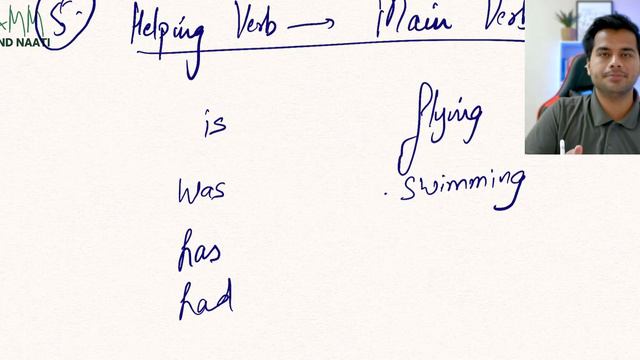 5.
Helping Verb → Main Verb
ND NAATI
is flying
was swimming
has
had